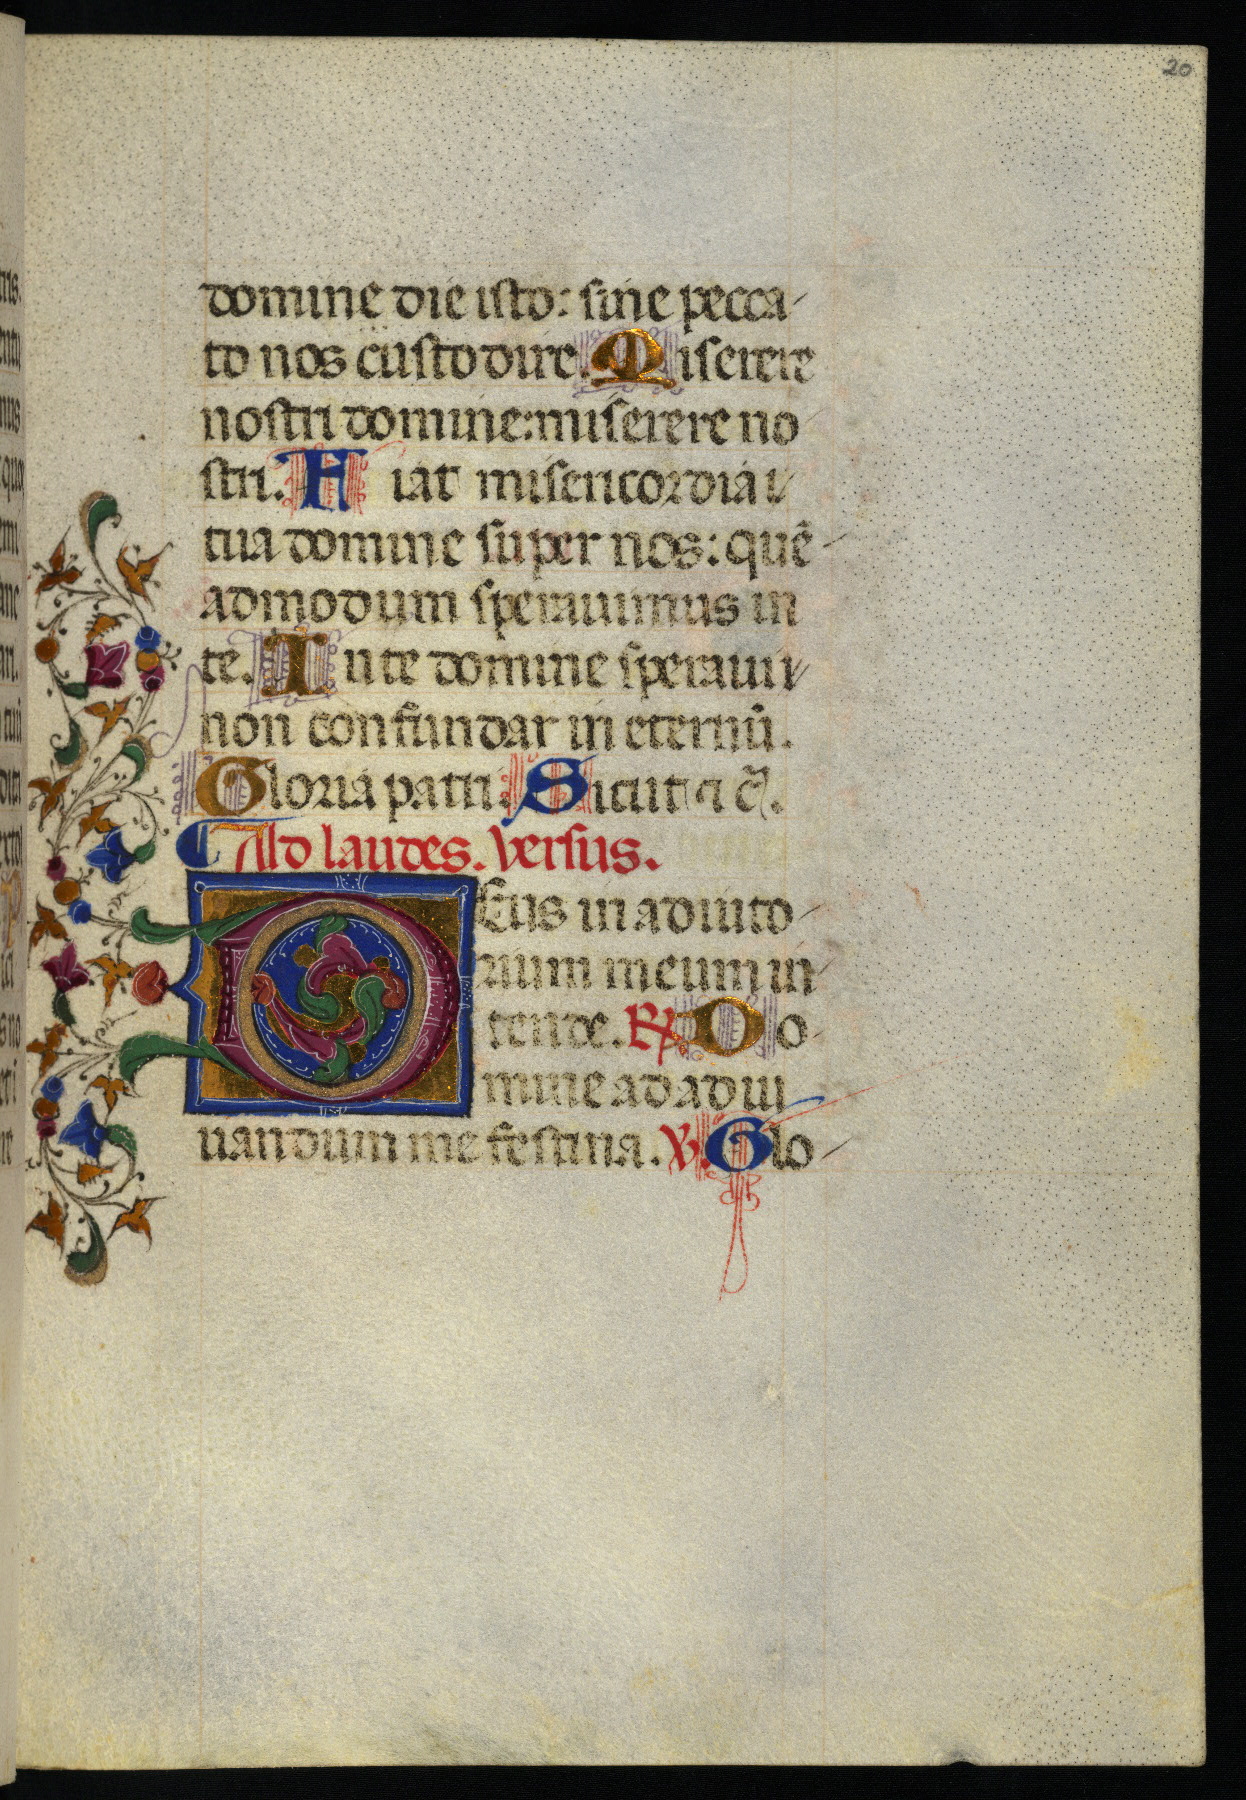 20
domine die isto: sine pecca
to nos custodire. Miserere
nostri domine: miserere no
stri. Fiat misericordia
tua domine super nos: quē
admodum sperauimus in
te. In te domine speraui
non confundar in eternū.
Gloria patri. Sicut ⁊ c̃.
Ad laudes. versus.
DEus in adiuto
rium meum in
tende. ℟ Do
mine ad adiu
uandum me festina. ℣. Glo